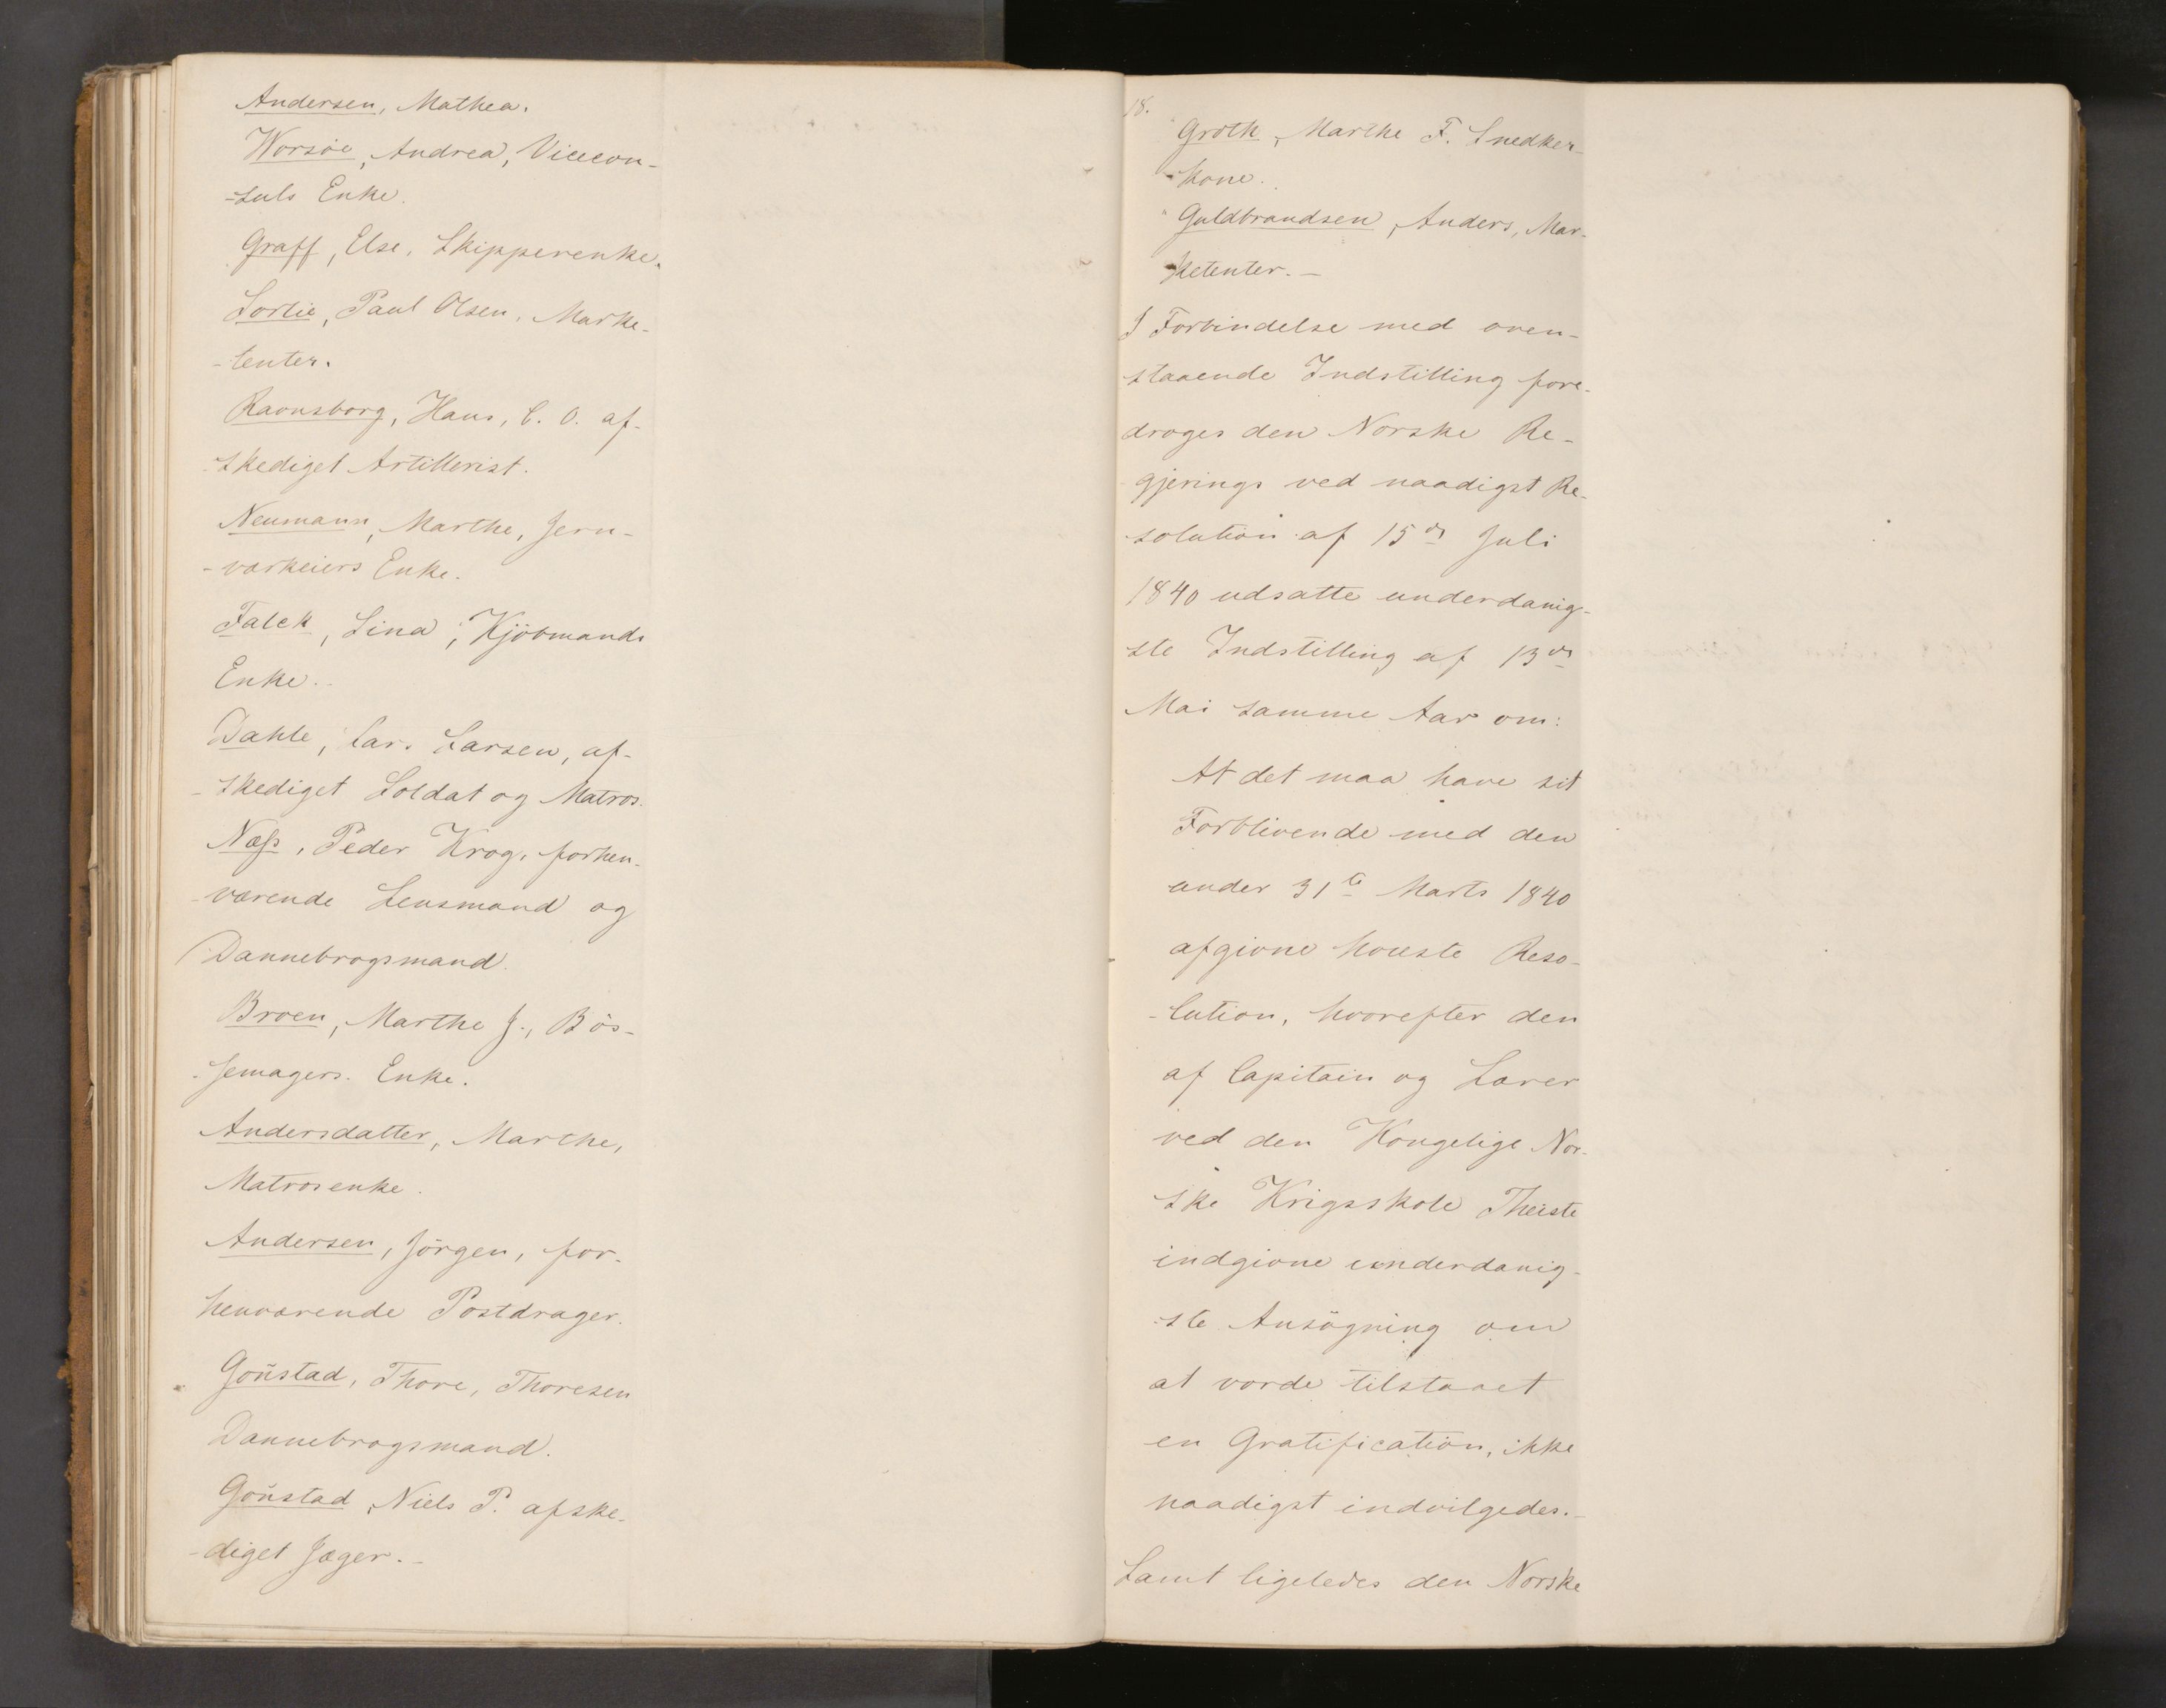 Andersen, Mathea.
Worsöe, Andrea, Vicecon-
-suls Enke.
Graff, Else, Skipperenke.
Sorlie, Paul Olsen, Marke-
-tenter.
Ravnsborg, Hans, C. O. af-
skediget Artillerist.
Neumann, Marthe, Jern-
-værkeiers Enke.
Falck, Lina, Kjöbmands
Enke.
Dahle, Lars Larsen, af-
-skediget Soldat og Matros.
Næss, Peder Krog, forhen-
-værende Lensmand og
Dannebrogsmand.
Broen, Marthe J., Bös-
-semagers Enke.
Andersdatter, Marthe,
Matrosenke.
Andersen, Jörgen, for-
henværende Postdrager.
Gon̄stad, Thore, Thoresen
Dannebrogsmand.
Gon̄stad, Niels P. afske-
-diget Jæger.-
18.
Groth, Marthe F. Snedker-
-kone.
Guldbrandsen, Anders, Mar-
-ketenter.-
I Forbindelse med oven-
staaende Indstilling fore-
droges den Norske Re-
gjerings ved naadigst Re-
solution af 15de Juli
1840 udsatte underdanig-
ste Indstilling af 13de
Mai samme Aar om:
At det maa have sit
Forblivende med den
under 31te Marts 1840
afgivne höieste Reso-
-lution, hvorefter den
af Capitain og Lærer
ved den Kongelige Nor-
ske Krigsskole Theiste
indgivne underdanig-
ste Ansögning om
at vorde tilstaaet
en Gratification, ikke
naadigst indvilgedes.-
Samt ligeledes den Norske